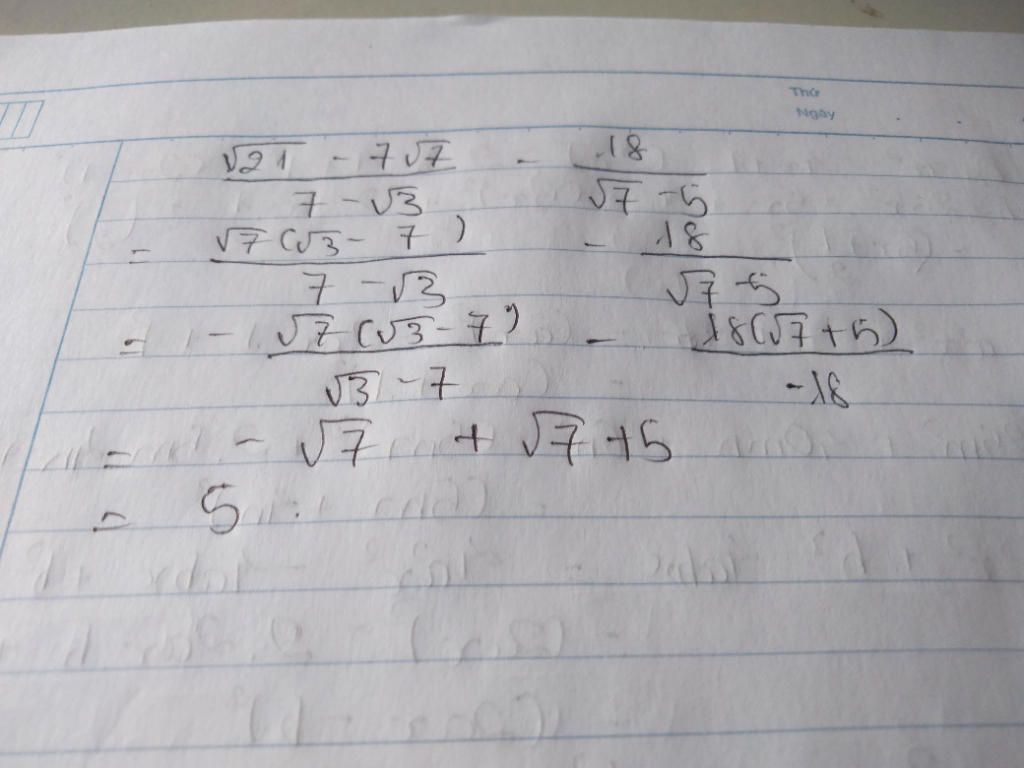 Thứ
Ngày
(√21 - 7√7)/(7 - √3) - 18/(√7 - 5)
= (√7(√3 - 7))/(7 - √3) - 18/(√7 - 5)
= - (√7(√3 - 7))/(√3 - 7) - (18(√7 + 5))/(-18)
= - √7 + √7 + 5
= 5